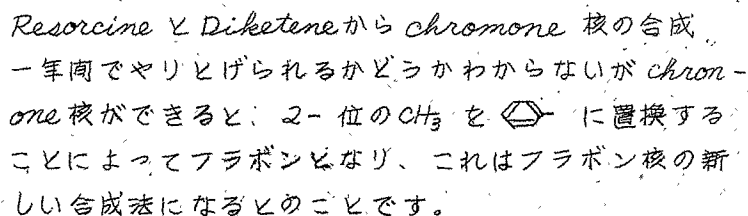 Resorcine と Diketene から chromone 核の合成
一年間でやりとげられるかどうかわからないが chron-
one 核ができると、2-位の CH₃ を に置換する
ことによってフラボンとなり、これはフラボン核の新
しい合成法になるとのことです。